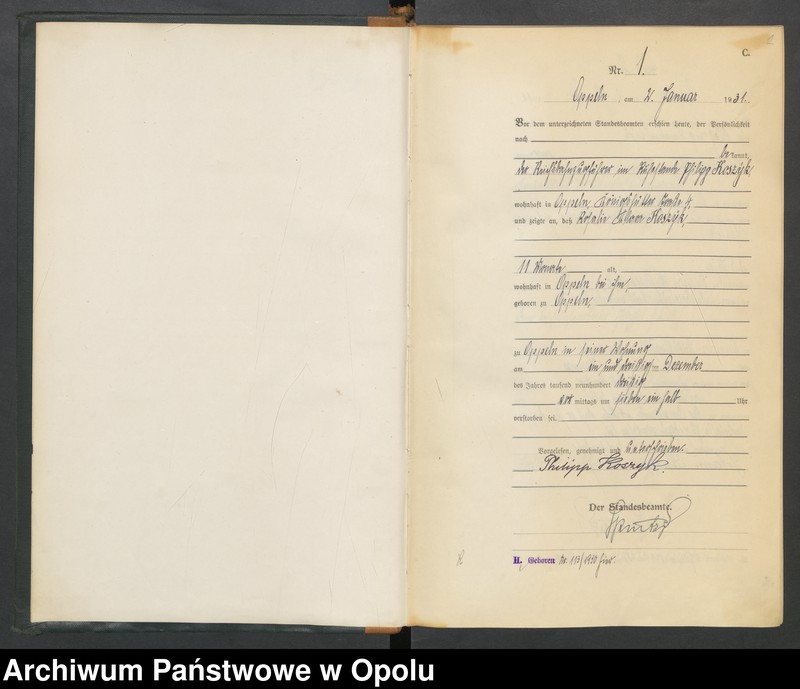 C.
Nr. 1.
Oppeln, am 2. Januar 1931.
Vor dem unterzeichneten Standesbeamten erschien heute, der Persönlichkeit
nach
bekannt,
der Reichsbahnzugführer im Ruhestande Philipp Koszyk,
wohnhaft in Oppeln, Königshütter Straße
und zeigte an, daß Rosalie Koszyk,
11 Monate alt,
wohnhaft in Oppeln bei ihm,
geboren zu Oppeln,
zu Oppeln in seiner Wohnung
am ein und dreißigsten Dezember
des Jahres tausend neunhundert dreißig
vor mittags um sieben ein halb Uhr
verstorben sei.
Vorgelesen, genehmigt und unterschrieben.
Philipp Koszyk.
Der Standesbeamte.
H. Geboren Nr. 113/1930 hier.
Archiwum Państwowe w Opolu